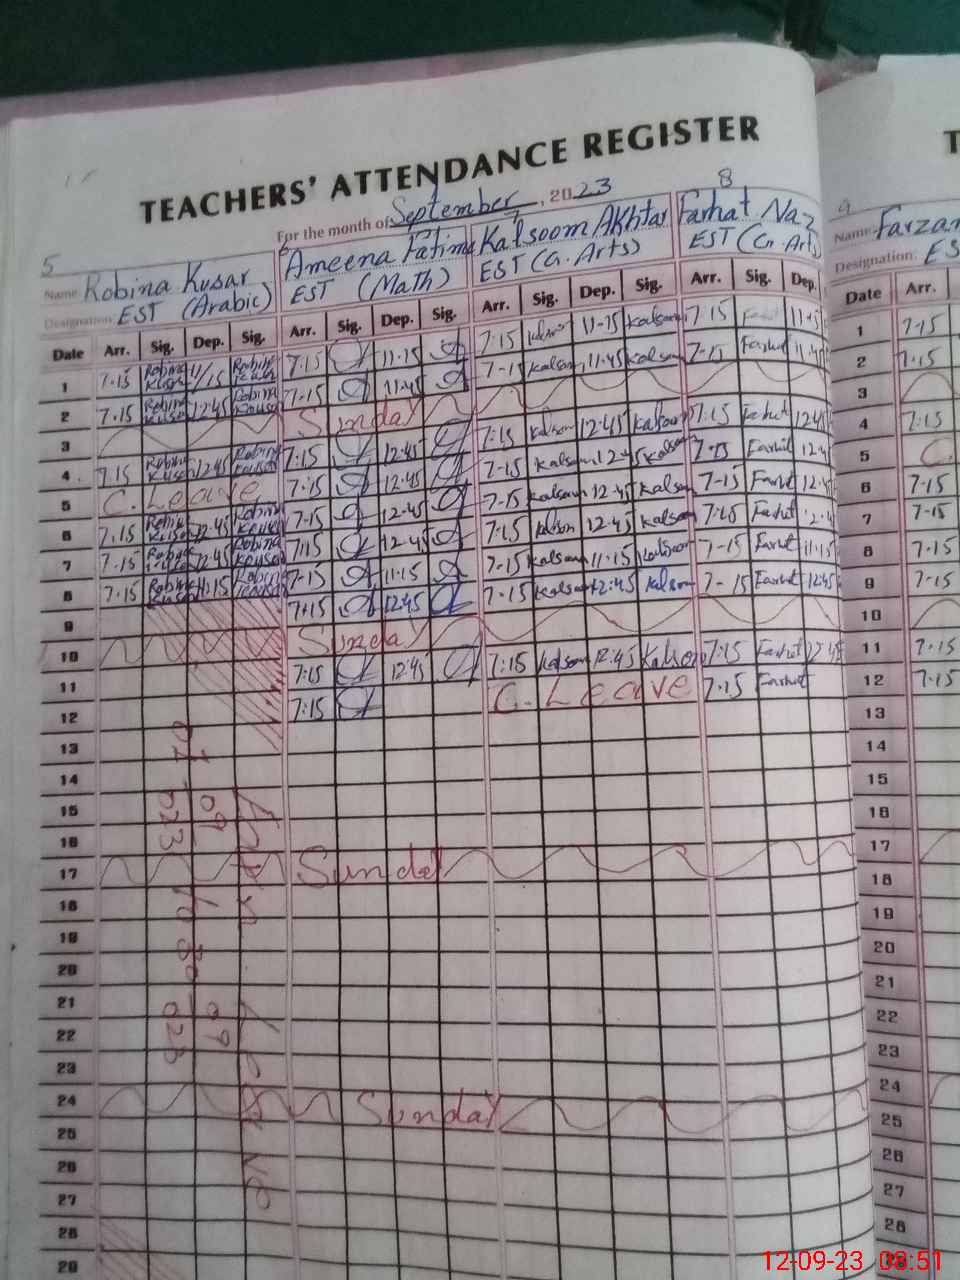 TEACHERS' ATTENDANCE REGISTER
For the month of September, 2023
5 6 7 8
Name Robina Kusar Ameena Fatima Kalsoom Akhtar Farhat Naz
Designation: EST (Arabic) EST (Math) EST (G. Arts) EST (G. Arts)
Date Arr. Sig. Dep. Sig. Arr. Sig. Dep. Sig. Arr. Sig. Dep. Sig. Arr. Sig. Dep.
1 7.15 Robina 11/15 Robina 7.15 11-15 7-15 11-15 Kalsoom 7-15 11-15
2 7.15 Robina Kusar 12:45 Robina 7-15 11:45 7-15 Kalsom 11.45 Kalsom 7-15 Farhat
3 Sunday
4 7.15 Robina 12:45 Robina 7:15 12:45 7:15 Kalsom 12:45 Kalsom 7:15 Farhat 12:45
5 C. Leave 7:15 12:45 7-15 Kalsom 12-45 Kalsom 7-15 Farhat
6 7.15 12.45 Robina 7-15 12-45 7-15 Kalsom 12-45 Kalsom 7-15 Farhat
7 7.15 12.45 Robina 7:15 12-45 7:15 Kalsom 12-45 Kalsom 7:15 Farhat
8 7.15 Robina 11:15 Robina 7-15 11-15 7-15 Kalsom 11-15 Kalsoom 7-15 Farhat 11:15
9 7:15 12:45 7.15 Kalsom 12:45 Kalsom 7-15 Farhat 12:45
10 Sunday
11 7:15 12:45 7:15 Kalsom 12:45 Kalsom 7:15 Farhat 12:45
12 7:15 C. Leave 7.15 Farhat
13
14
15
16
17 Sunday
18
19
20
21
22
23
24 Sunday
25
26
27
28
29
01-09-023 to 30-09-023
Leave
9
Name: Farzan
Designation: ES
Date Arr.
1 7-15
2 7.15
3
4 7:15
5 C.
6 7-15
7 7-15
8 7-15
9 7-15
10
11 7-15
12 7:15
13
14
15
16
17
18
19
20
21
22
23
24
25
26
27
28
12-09-23 08:51